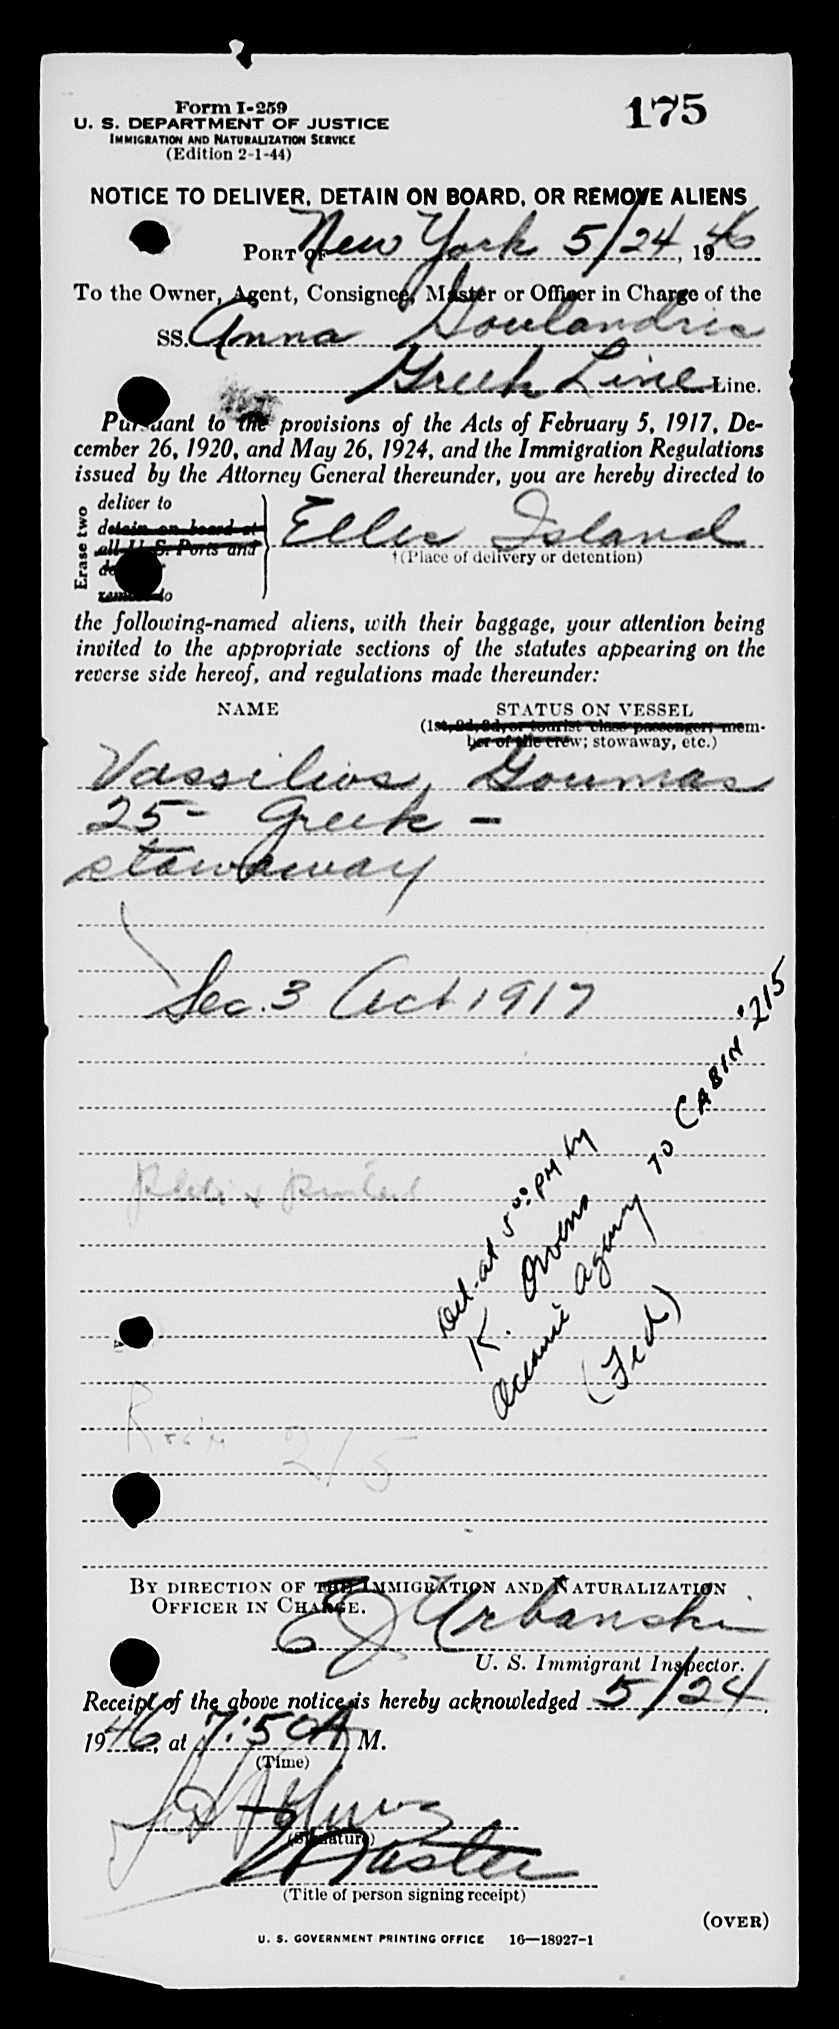 Form I-259
175
U. S. DEPARTMENT OF JUSTICE
IMMIGRATION AND NATURALIZATION SERVICE
(Edition 2-1-44)
NOTICE TO DELIVER, DETAIN ON BOARD, OR REMOVE ALIENS
PORT OF New York 5/24, 1946
To the Owner, Agent, Consignee, Master or Officer in Charge of the
SS. Anna Goulandris
Greek Line Line.
Pursuant to the provisions of the Acts of February 5, 1917, De-
cember 26, 1920, and May 26, 1924, and the Immigration Regulations
issued by the Attorney General thereunder, you are hereby directed to
Erase two
deliver to
detain on board at
all U. S. Ports and
remove to
Ellis Island
†(Place of delivery or detention)
the following-named aliens, with their baggage, your attention being
invited to the appropriate sections of the statutes appearing on the
reverse side hereof, and regulations made thereunder:
NAME STATUS ON VESSEL
(1st, 2d, 3d, or tourist class passenger; mem-
ber of the crew; stowaway, etc.)
Vassilios Goumas
25 - Greek -
stowaway
Sec. 3 Act 1917
Del. at 5:00 PM by
K. Owens
Oceanic Agency TO CABIN #215
(Fed)
Photo & printed
Room 215
BY DIRECTION OF THE IMMIGRATION AND NATURALIZATION
OFFICER IN CHARGE.
EJ Urbanski
U. S. Immigrant Inspector.
Receipt of the above notice is hereby acknowledged 5/24,
1946, at 7:50 A M.
(Time)
(Signature)
Master
(Title of person signing receipt)
(OVER)
U. S. GOVERNMENT PRINTING OFFICE 16—18927-1